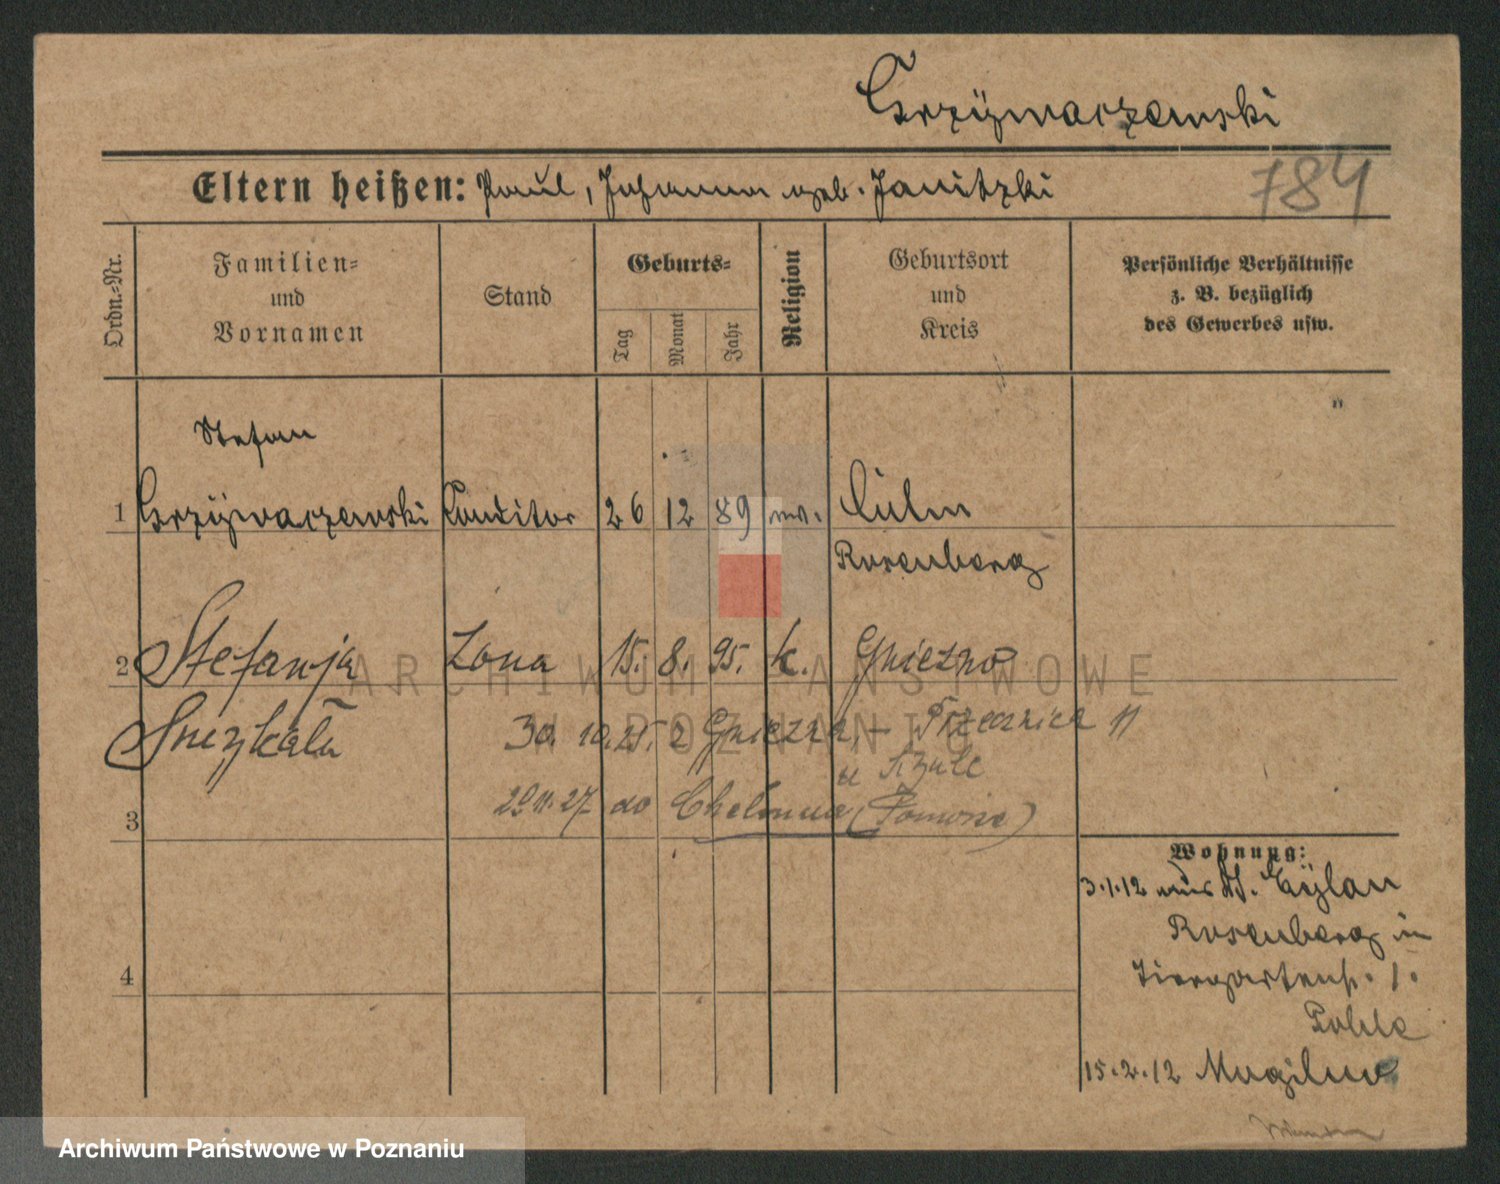 Grzÿwaczewski
784
Eltern heißen: Paul, Johanna geb. Janitzki
Ordn.-Nr.
Familien-
und
Vornamen
Stand
Geburts-
Tag
Monat
Jahr
Religion
Geburtsort
und
Kreis
Persönliche Verhältnisse
z. B. bezüglich
des Gewerbes usw.
Stefan
1 Grzÿwaczewski Conditor 26 12 89 Culm
Rosenberg
2 Stefanja żona 15. 8. 95. k. Gniezno
30. 10. 25. z Gniezna - 11
29 11. 27 do Chełmna (Pomorze)
3
4
Wohnung:
3.1.12 aus Dt. Eÿlau
Rosenberg in
Tiergartenstr. 1.
15.2.12 Mogilno
ARCHIWUM PAŃSTWOWE
W POZNANIU
Archiwum Państwowe w Poznaniu